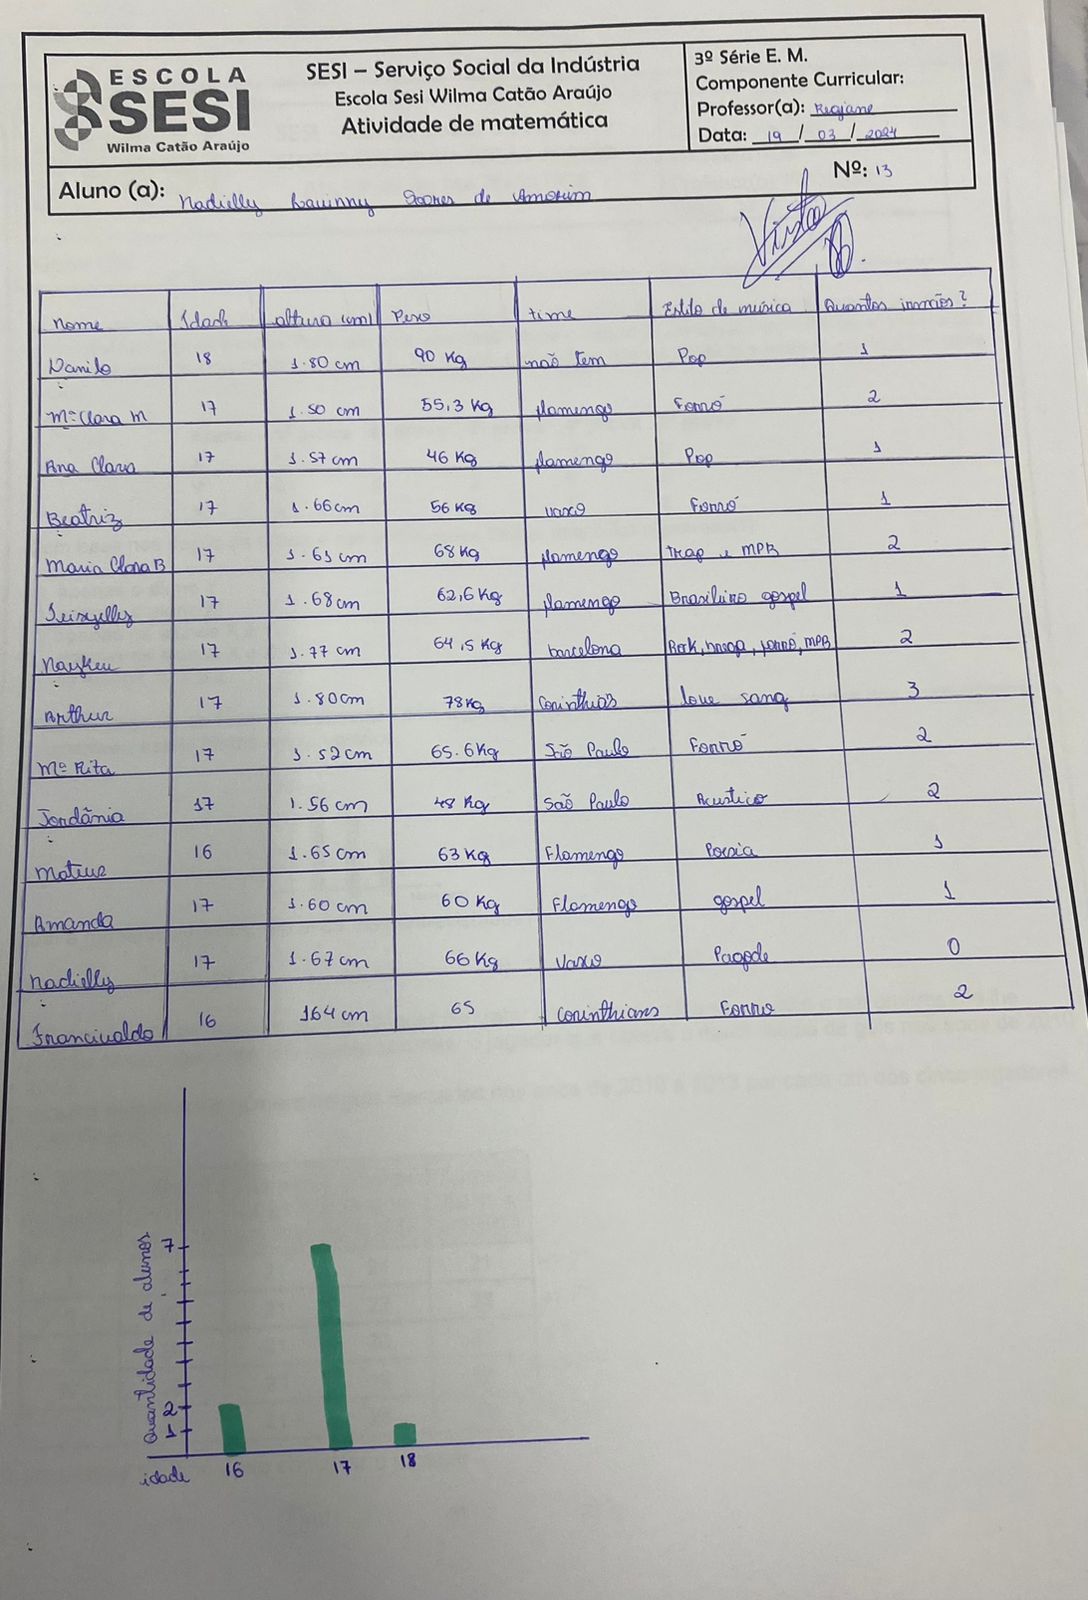 ESCOLA
SESI
Wilma Catão Araújo
SESI – Serviço Social da Indústria
Escola Sesi Wilma Catão Araújo
Atividade de matemática
3º Série E. M.
Componente Curricular:
Professor(a): Regiane
Data: 19 / 03 / 2024
Aluno (a): Nadielly Rauinny Soares de Amorim
Nº: 13
Visto
Nome Idade altura (cm) Peso time Estilo de música Quantos irmãos?
Danilo 18 1.80 cm 90 Kg não tem Pop 1
Mª Clara M 17 1.50 cm 55,3 Kg flamengo Forró 2
Ana Clara 17 1.57 cm 46 Kg flamengo Pop 1
Beatriz 17 1.66 cm 56 Kg vasco Forró 1
Maria Clara B 17 1.61 cm 68 Kg flamengo Trap e MPB 2
17 1.68 cm 62,6 Kg flamengo Brasileiro gospel 1
17 1.77 cm 64,5 Kg barcelona Rock, brega, forró, MPB 2
Arthur 17 1.80 cm 78 Kg Corinthias love song 3
Mª Rita 17 1.52 cm 65.6 Kg São Paulo Forró 2
Jordânia 17 1.56 cm 48 Kg São Paulo Acustico 2
Mateus 16 1.65 cm 63 Kg Flamengo Poesia 1
Amanda 17 1.60 cm 60 Kg Flamengo gospel 1
Nadielly 17 1.67 cm 66 Kg vasco Pagode 0
Francivaldo 16 164 cm 65 Corinthians Forro 2
Quantidade de alunos
7
2
1
idade 16 17 18